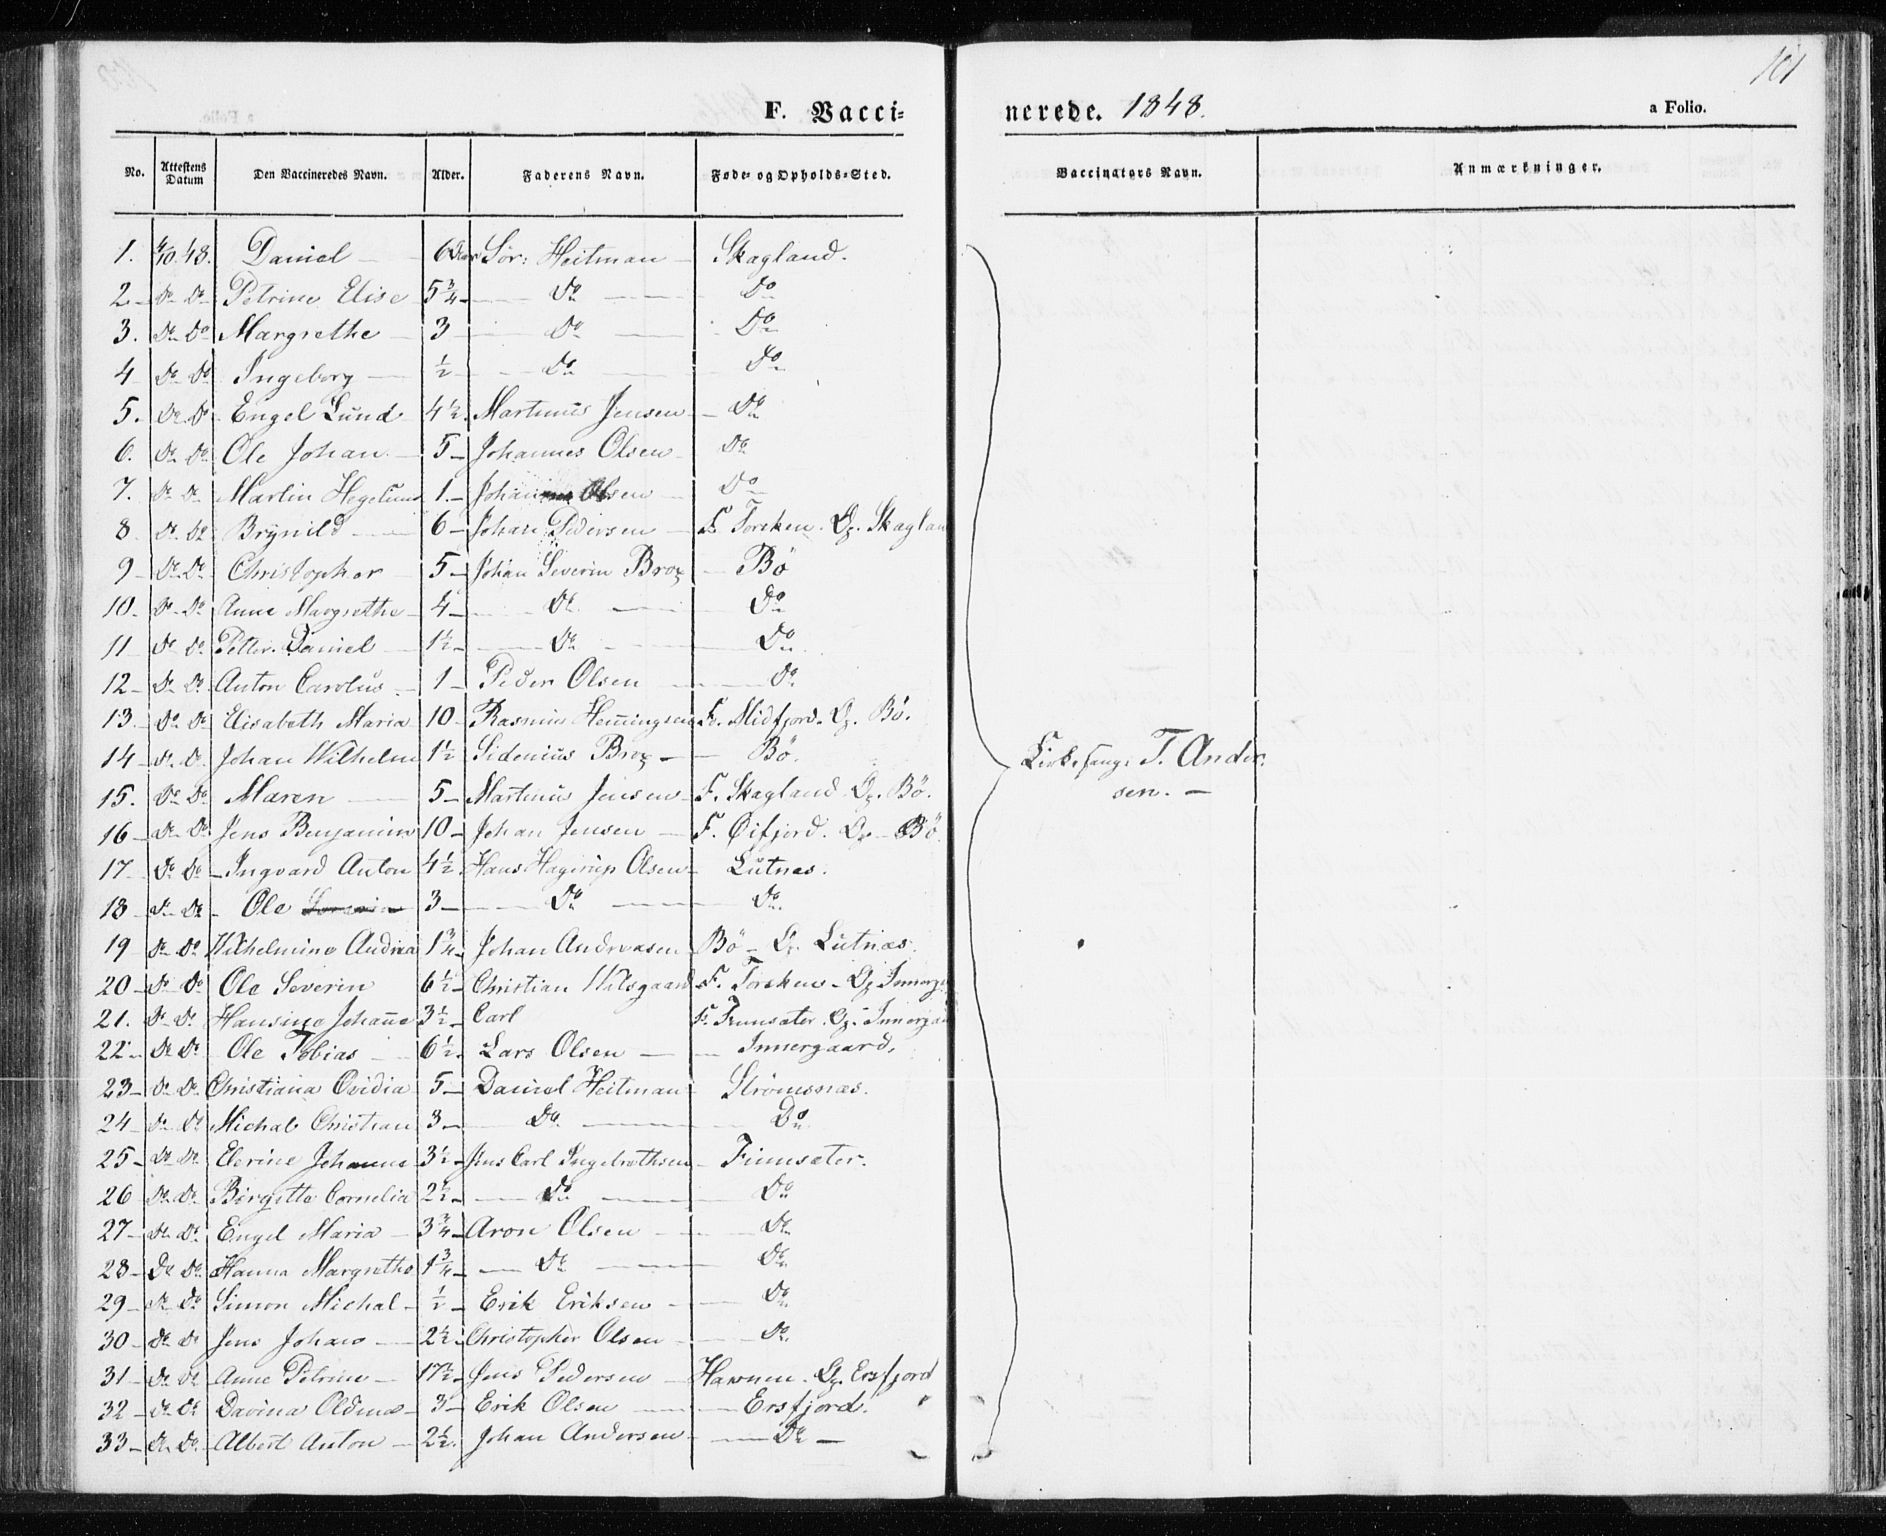 101
F. Vacci-
nerede. 1848.
a Folio.
No. Attestens Datum Den Vaccineredes Navn. Alder. Faderens Navn. Føde- og Opholds-Sted. Vaccinators Navn. Anmærkninger.
1. 4/10 48. Daniel 6 Aar Sør: Heitman Skagland.
2 Do Do Petrine Elise 5 3/4 Do Do
3. Do Do Margrethe 3 Do Do
4 Do Do Ingeborg 1/2 Do Do
5. Do Do Engel Lund 4 1/2 Martinus Jensen Do
6. Do Do Ole Johan 5 Johannes Olsen Do
7. Do Do Martin Hegelund 1 Olsen Do
8 Do Do Brynild 6 Johan Pedersen F. Torsken. Op. Skagland
9 Do Do Christopher 5 Johan Severin Brox Bö
10 Do Do Anne Margrethe 4 Do Do
11 Do Do Petter Daniel 1 1/2 Do Do
12 Do Do Anton Carolus 1 Peder Olsen Do
13 Do Do Elisabeth Maria 10 Rasmus Hemingsen F. Midfjord. Op. Bö.
14 Do Do Johan Wilhelm 1 1/2 Sidenius Brox Bö.
15. Do Do Maren 5 Martinus Jensen F. Skagland Op. Bö.
16 Do Do Jens Benjamin 10 Johan Jensen F. Öifjord. Op. Bö
17 Do Do Ingvard Anton 4 1/2 Hans Hagerup Olsen Lutnæs.
18 Do Do Ole 3 Do Do
19 Do Do Wilhelmine Andrea 1 3/4 Johan Andreasen Bö Op. Lutnæs.
20 Do Do Ole Severin 6 1/2 Christian Wilsgaard F. Torsken Op. Innerg
21. Do Do Hansine Johanne 3 1/2 Carl F. Finnsæter. Op. Innergaa
22 Do Do Ole Tobias 6 1/2 Lars Olsen Innergaard.
23 Do Do Christiana Ovidia 5 Daniel Heitman Strömsnæs.
24 Do Do Michal Christian 3 Do Do
25 Do Do Elerine Johanna 3 1/2 Jens Carl Ingebrethsen Finnsæter.
26 Do Do Birgitte Cornelia 2 1/2 Do Do
27 Do Do Engel Maria 3 3/4 Aron Olsen Do
28 Do Do Hanna Margrethe 1 3/4 Do Do
29 Do Do Simon Michal 1/2 Erik Eriksen Do
30 Do Do Jens Johan 2 1/2 Christopher Olsen Do
31 Do Do Anne Petrine 17 1/2 Jens Pedersen Havnen. Op. Ersfjord
32 Do Do Davina Oldine 3 Erik Olsen Ersfjord.
33 Do Do Albert Anton 2 1/2 Johan Andersen Do
Kirkesang: T. Ander-
sen.